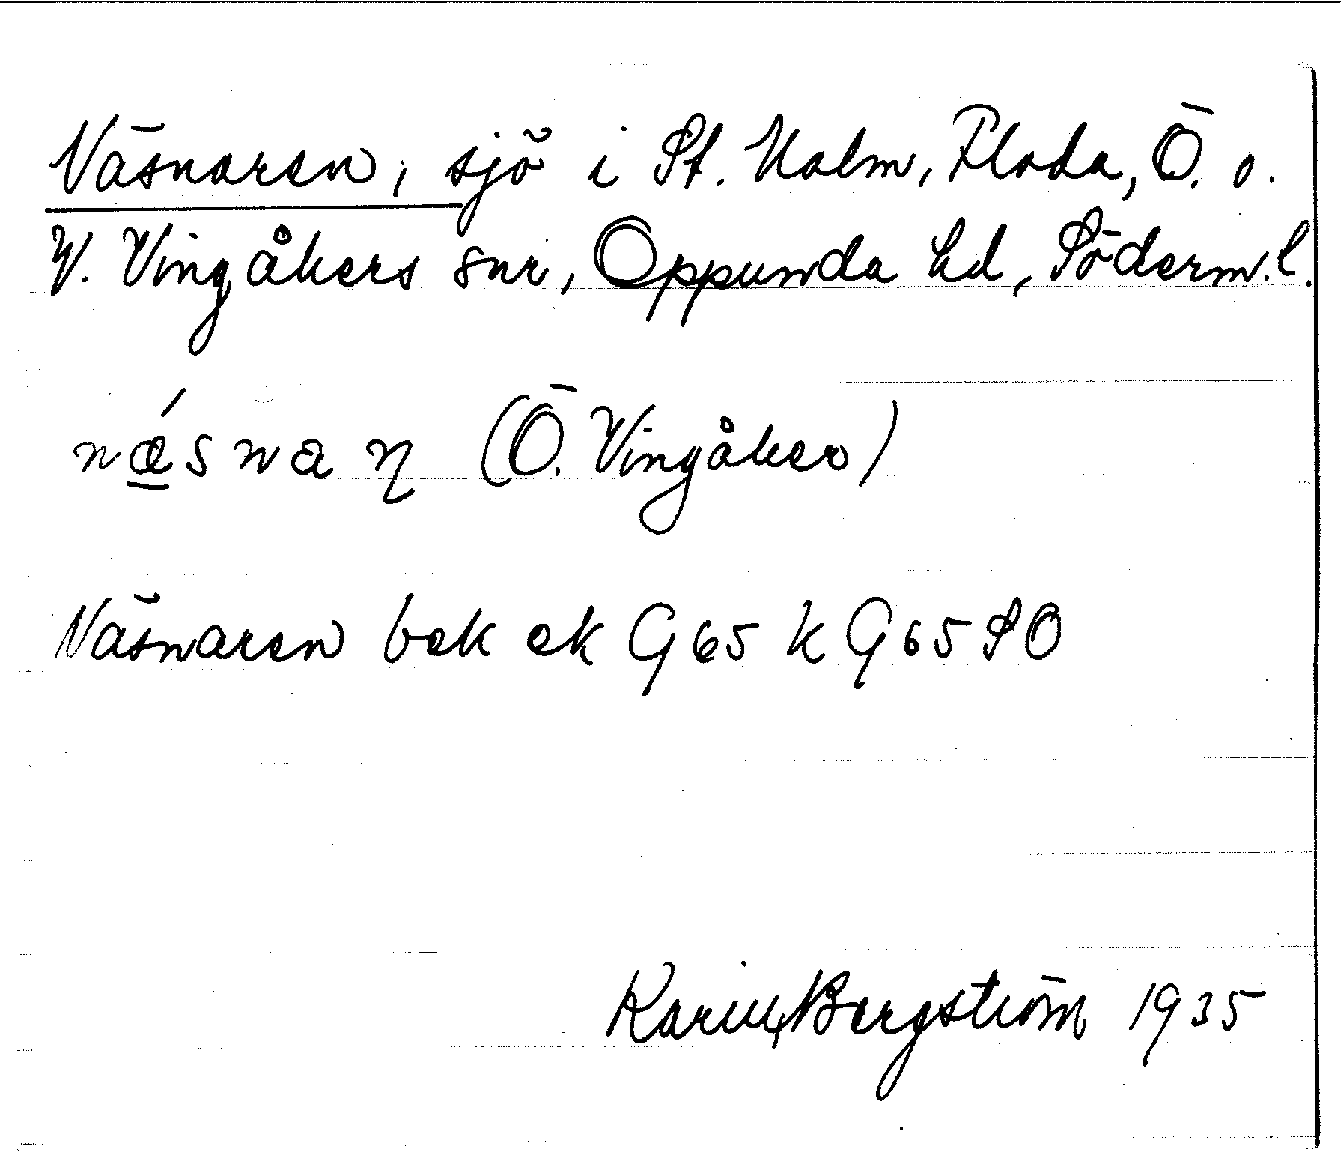 Näsnaren, sjö i St. Malm, Floda, Ö. o.
V. Vingåkers snr, Oppunda hd, Söderm.l.
nǽsnaɳ (Ö. Vingåker)
Näsnaren bek ek G65 k G65SO
Karin Bergström 1935